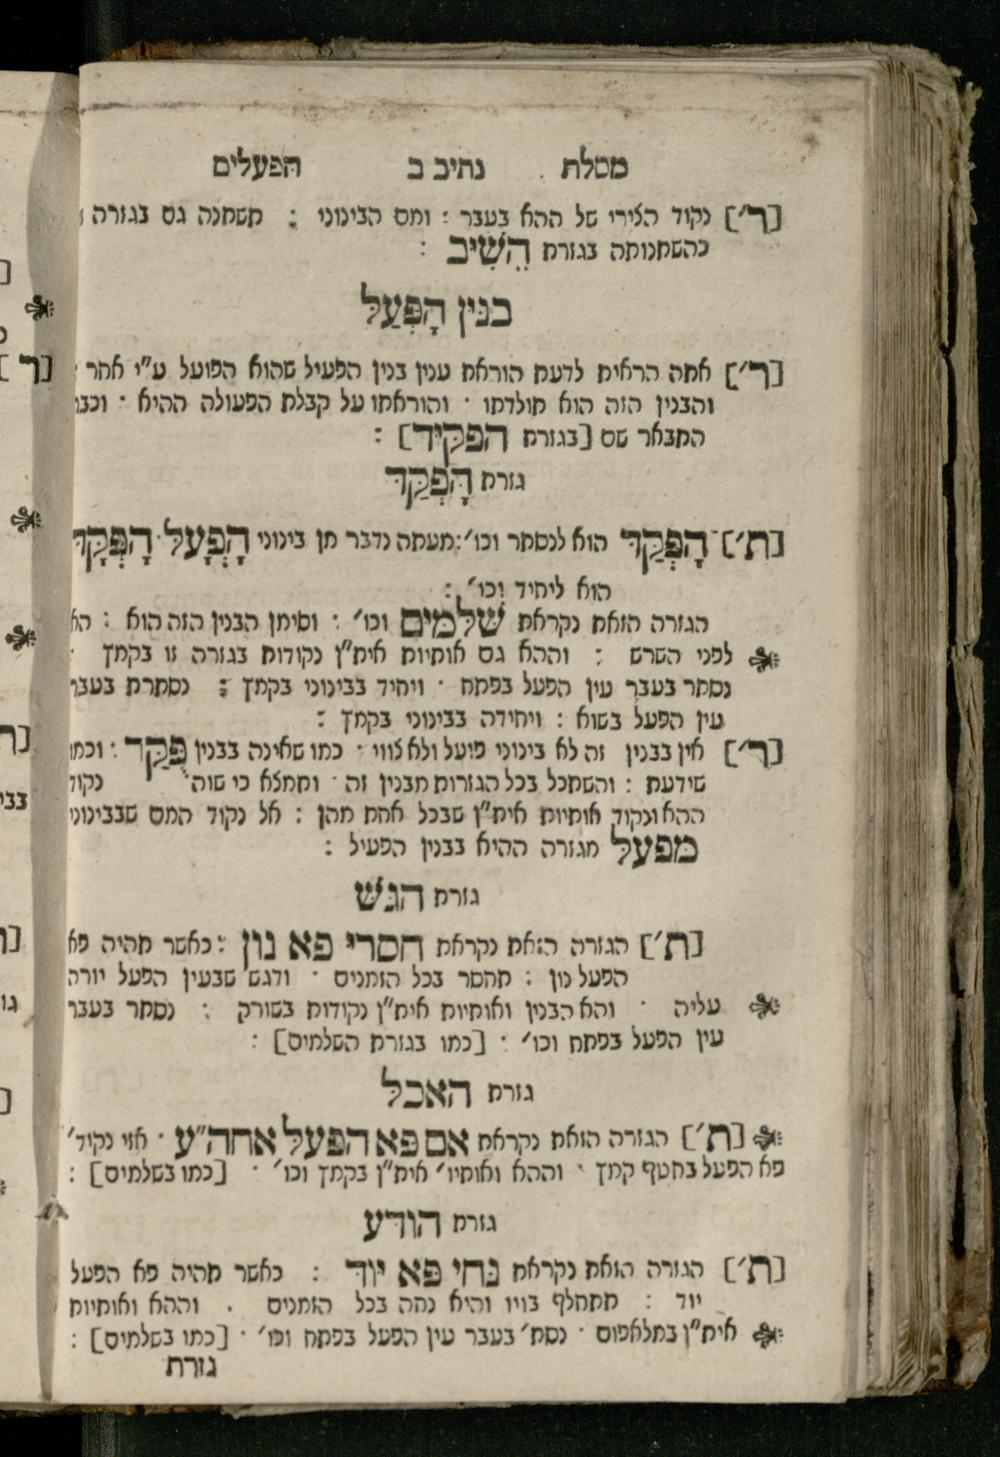 מסלת נתיב ב הפעלים
[ר׳] נקוד הצירי של ההא בעבר : ומם הבינוני : תשתנה גם בגזרה
כהשתנותה בגזרת הֵשִׁיב :
בנין הָפְעַל
[ר׳] אתה הראית לדעת הוראת ענין בנין הפעיל שהוא הפועל ע״י אחר :
והבנין הזה הוא תולדתו · והוראתו על קבלת הפעולה ההיא · וכבר
התבאר שם [בגזרת הפקיד] :
גזרת הָפְקַד
[ת׳] הָפְקַד הוא לנסתר וכו׳ : מעתה נדבר מן בינוני הָפְעָל · הָפְקָד
הוא ליחיד וכו׳ :
הגזרה הזאת נקראת שלמים וכו׳ : וסימן הבנין הזה הוא : הא
לפני השרש : וההא גם אותיות אית״ן נקודות בגזרה זו בקמץ :
נסתר בעבר עין הפעל בפתח · ויחיד בבינוני בקמץ : נסתרת בעבר
עין הפעל בשוא : ויחידה בבינוני בקמץ :
[ר׳] אין בבנין זה לא בינוני פועל ולא צווי · כמו שאינה בבנין פֻּקַּד : וכמו
שידעת : והשתכל בכל הגזרות מבנין זה · ותמצא כי שוה נקוד
ההא ונקוד אותיות אית״ן שבכל אחת מהן : אל נקוד המם שבבינוני
מפעל מגזרה ההיא בבנין הפעיל :
גזרת הגש
[ת׳] הגזרה הזאת נקראת חסרי פא נון : כאשר תהיה פא
הפעל נון : תחסר בכל הזמנים · ודגש שבעין הפעל יורה
עליה · והא הבנין ואותיות אית״ן נקודות בשורק : נסתר בעבר
עין הפעל בפתח וכו׳ · [כמו בגזרת השלמים] :
גזרת האכל
[ת׳] הגזרה הזאת נקראת אם פא הפעל אחה״ע · אזי נקוד׳
פא הפעל בחטף קמץ · וההא ואותיו׳ אית״ן בקמץ וכו׳ · [כמו בשלמים] :
גזרת הודע
[ת׳] הגזרה הזאת נקראת נחי פא יוד : כאשר תהיה פא הפעל
יוד : תתחלף בויו והיא נחה בכל הזמנים . וההא ואותיות
אית״ן במלאפום · נסת׳ בעבר עין הפעל בפתח וכו׳ · [כמו בשלמים] :
גזרת